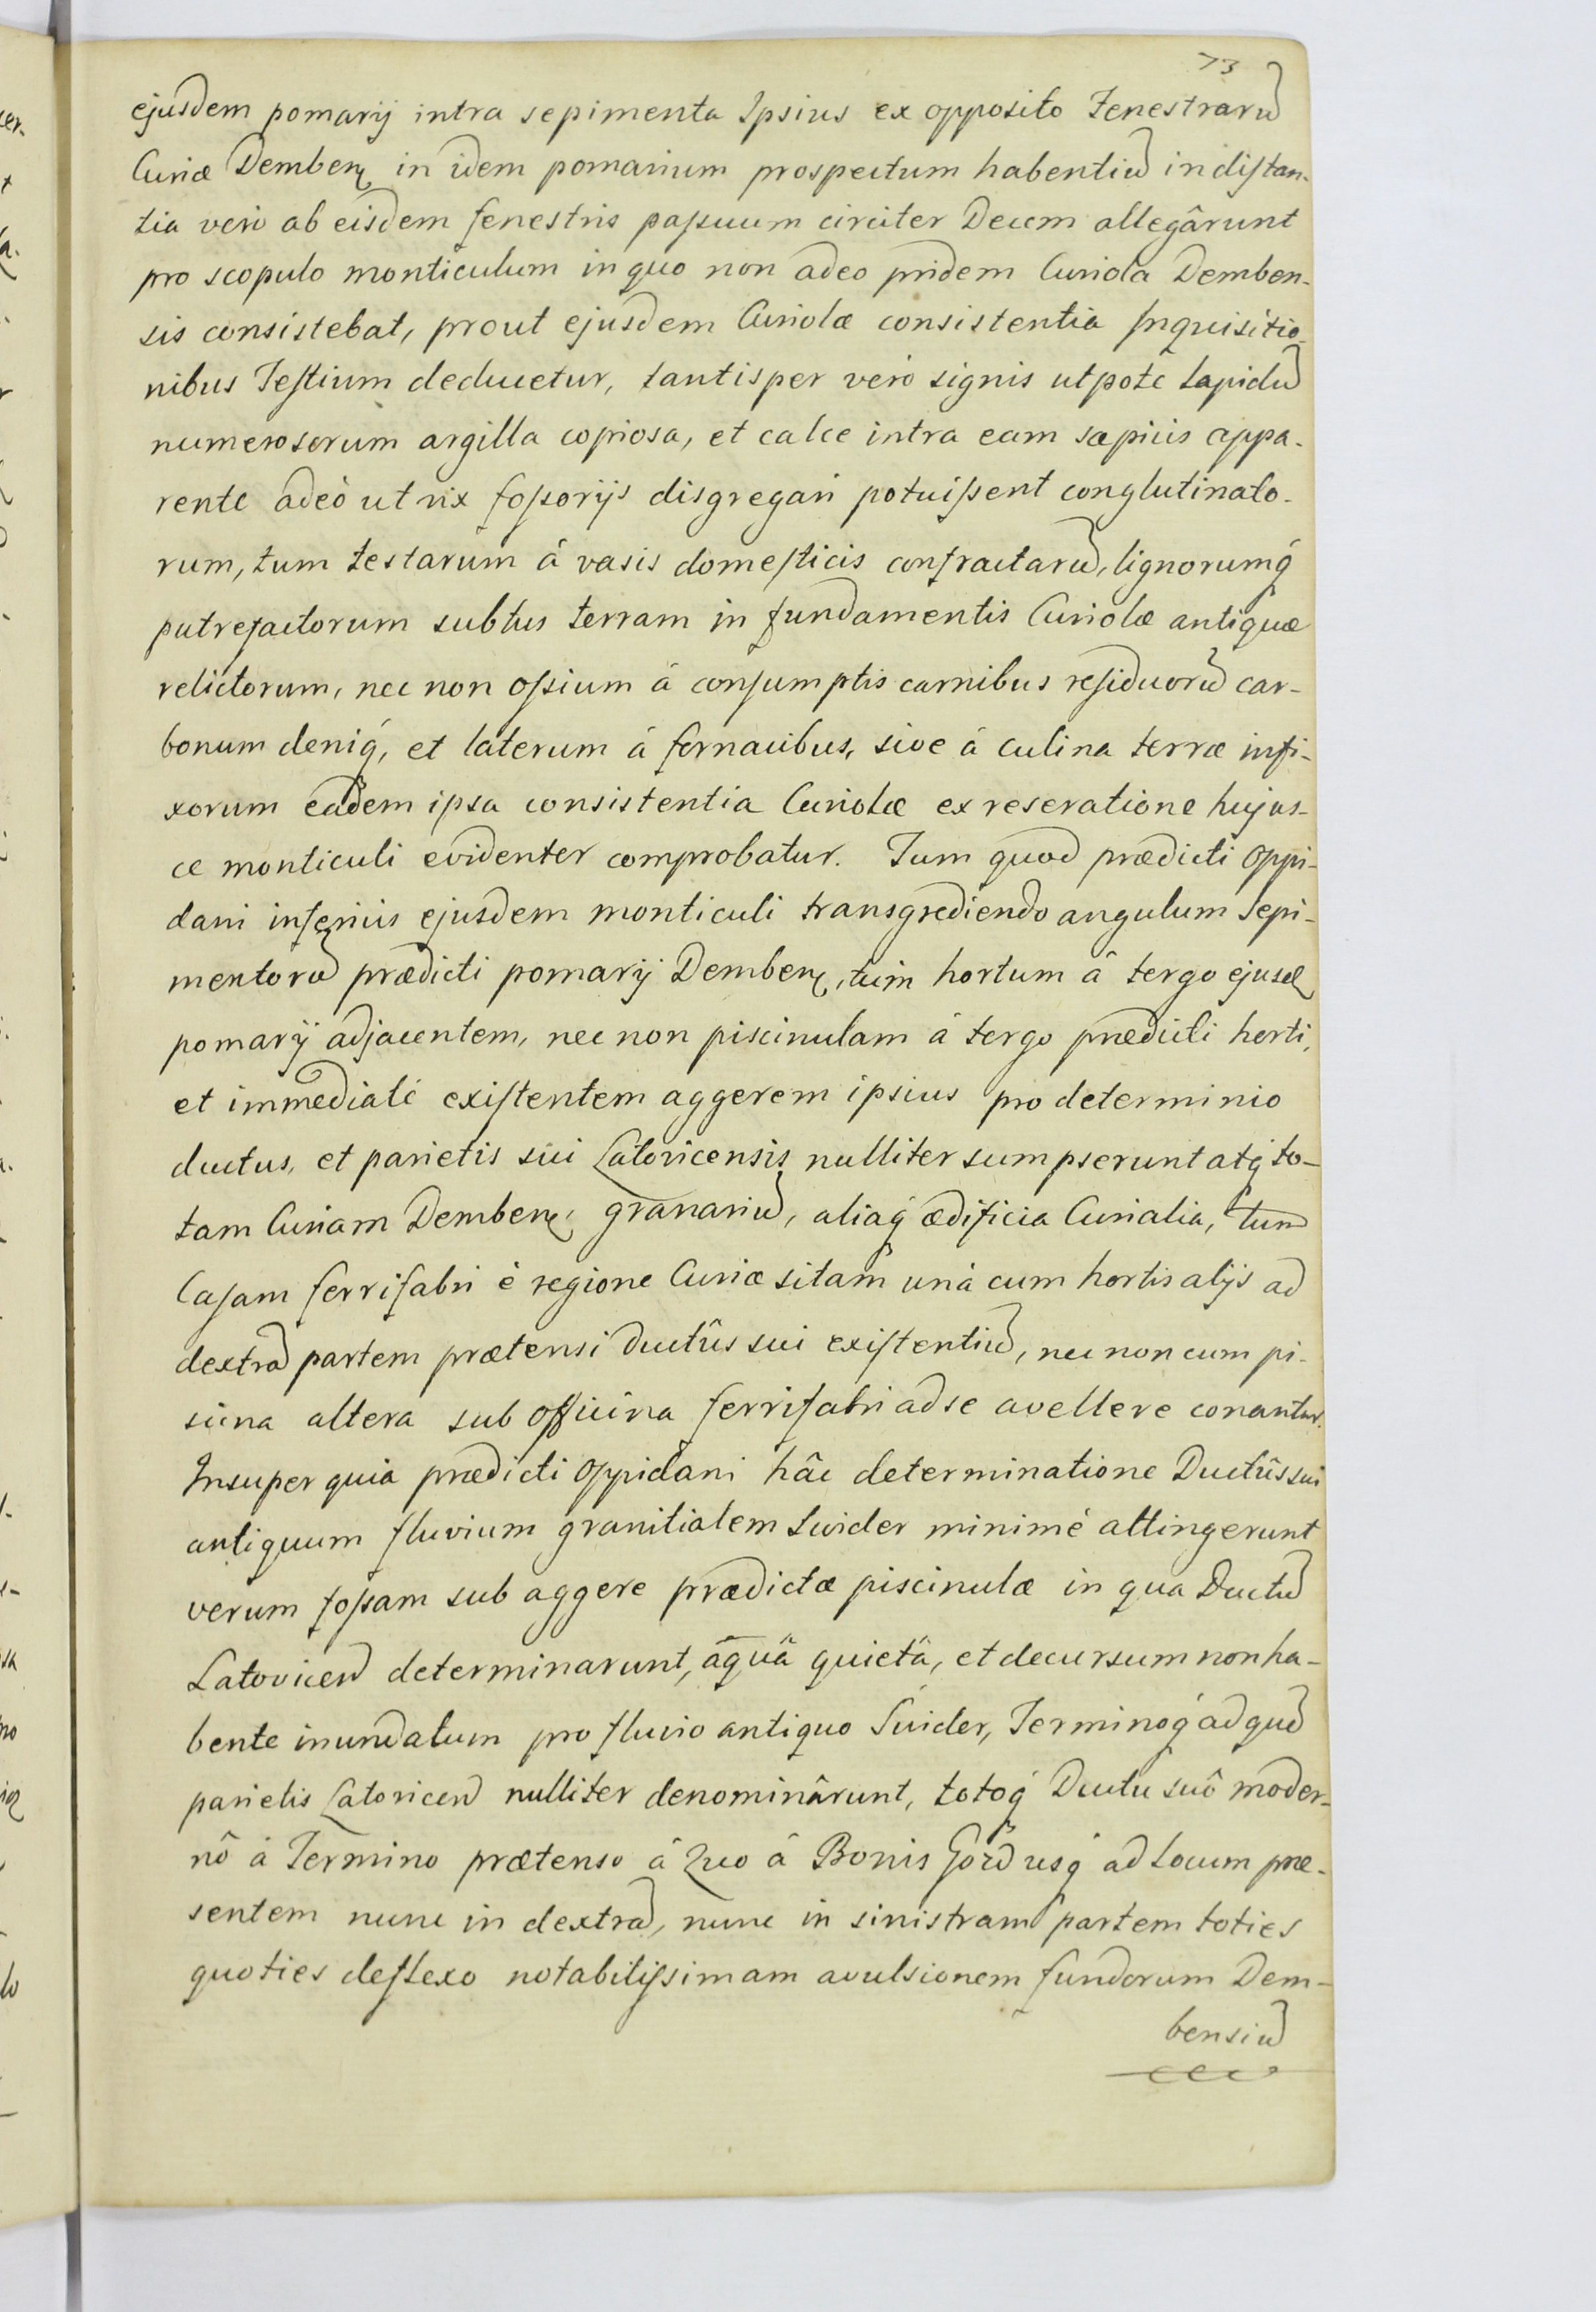 73
ejusdem pomarij intra sepimenta Ipsius ex opposito Fenestrarũ
Curiæ Demben: in idem pomarium prospectum habentiũ in distan-
tia verò ab eisdem fenestris passuum circiter Decem allegârunt
pro scopulo monticulum in quo non adeo pridem Curiola Demben-
sis consistebat, prout ejusdem Curiolæ consistentia Inquisitio-
nibus Testium deducetur, tantisper verò signis utpotè Lapidũ
numerosorum argilla copiosa, et calce intra eam sæpius appa-
rente adeò ut vix fossorijs disgregari potuissent conglutinato-
rum, tum testarum á vasis domesticis confractarũ, lignorumq́
putrefactorum subtus terram in fundamentis Curiolæ antiquæ
relictorum, nec non ossium á consumptis carnibus residuorũ car-
bonum deniq́, et laterum á fornacibus, sive á culina terræ infi-
xorum eadem ipsa consistentia Curiolæ ex reseratione hujus-
ce monticuli evidenter comprobatur. Tum quod prædicti oppi-
dani inferius ejusdem monticuli transgrediendo angulum Sepi-
mentorũ prædicti pomarij Demben:, tùm hortum â tergo ejusd:
pomarij adjacentem, nec non piscinulam á tergo prædicti horti,
et immediatè existentem aggerem ipsius pro determinio
ductus, et parietis sui Latovicensis nulliter sumpserunt atq́ to-
tam Curiam Demben:, granariũ, aliaq́ ædificia Curialia, tum
Casam ferrifabri è regione Curiæ sitam unà cum hortis alijs ad
dextrã partem prætensi Ductûs sui existentiũ, nec non cum pi-
scina altera sub officina ferrifabri ad se avellere conantur.
Insuper quia prædicti oppidani hâc determinatione Ductûs sui
antiquum fluvium granitialem Swider minimè attingerunt
verum fossam sub aggere prædictæ piscinulæ in qua Ductũ
Latovicen̄ determinarunt, aquâ quietâ, et decursum non ha-
bente inundatum pro fluvio antiquo Swider, Terminoq́ ad quẽ
parietis Latovicen̄ nulliter denominârunt, totoq́ Ductu suô moder-
nô á Termino prætenso á Quo á Bonis Górd usq́ ad Locum præ-
sentem nunc in dextrã, nunc in sinistram partem toties
quoties deflexo notabilissimam avulsionem fundorum Dem-
bensiũ